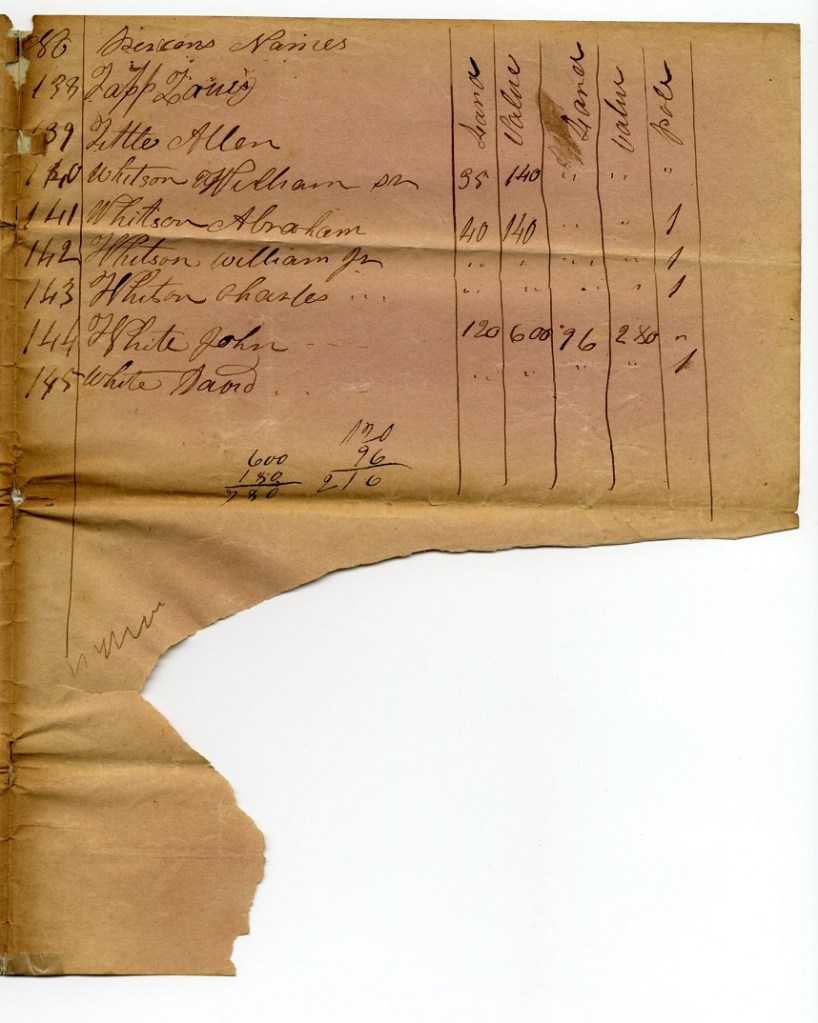 No Persons Names Land Value Land Value pole
138 Zapp Louis
139 Little Allen
140 Whitson William Sr 95 140 " " "
141 Whitson Abraham 40 140 " " 1
142 Whitson William Jr " " " " 1
143 Whitson Charles ... " " " " 1
144 White John - - 120 600 96 280 "
145 White David . . - " " " " 1
120
600 96
180 216
780